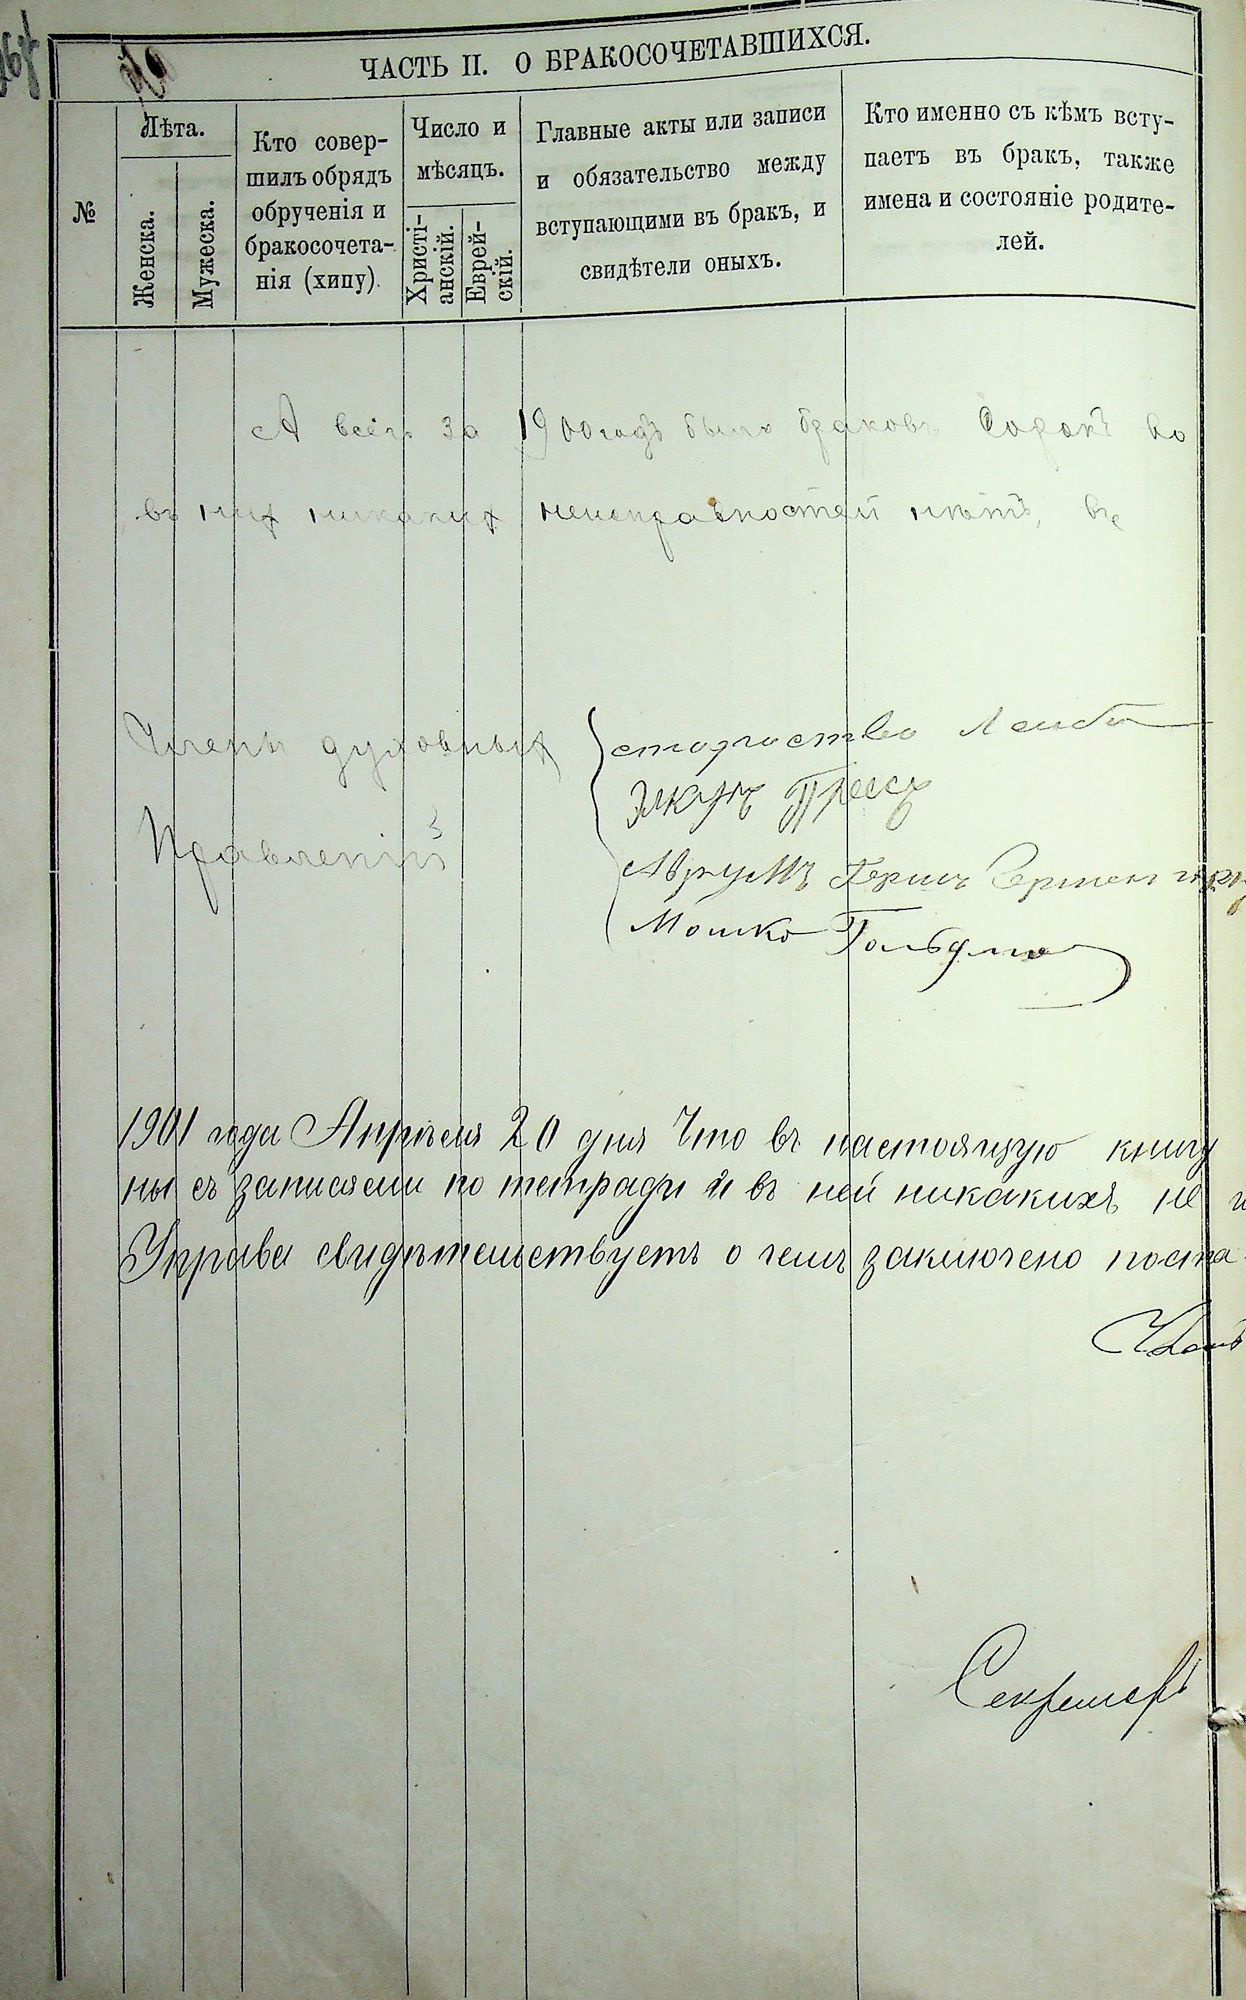 ЧАСТЬ II. О БРАКОСОЧЕТАВШИХСЯ.
№
Лѣта.
Женска.
Мужеска.
Кто совер-
шилъ обрядъ
обрученія и
бракосочета-
нія (хипу).
Число и
мѣсяцъ.
Христі-
анскій.
Еврей-
скій.
Главные акты или записи
и обязательство между
вступающими въ бракъ, и
свидѣтели оныхъ.
Кто именно съ кѣмъ всту-
паетъ въ бракъ, также
имена и состояніе родите-
лей.
А всего за 1900 годъ было браковъ Сорокъ во
въ них никаких неисправностей нѣтъ, в
Члены духовных
Правленій
Лейба
Элкунъ Пресс
Аврумъ Герш
Мошко Гольдма
1901 года Апрѣля 20 дня Что въ настоящую книгу
ны съ записями по тетради и въ ней никакихъ не
Управа свидѣтельствуетъ о чемъ заключено поста
Член
Секретарь